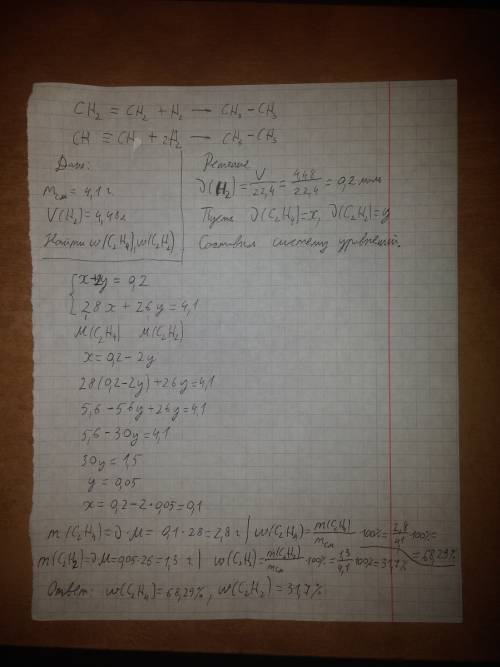 CH₂ = CH₂ + H₂ → CH₃ – CH₃
CH ≡ CH + 2H₂ → CH₃ – CH₃
Дано:
mсм = 4,1 г
V(H₂) = 4,48 л
Найти w(C₂H₄), w(C₂H₂)
Решение
ν(H₂) = V/22,4 = 4,48/22,4 = 0,2 моль
Пусть ν(C₂H₄) = x, ν(C₂H₂) = y
Составим систему уравнений.
x+2y = 0,2
28x + 26y = 4,1
M(C₂H₄) M(C₂H₂)
x = 0,2 – 2y
28(0,2 – 2y) + 26y = 4,1
5,6 – 56y + 26y = 4,1
5,6 – 30y = 4,1
30y = 1,5
y = 0,05
x = 0,2 – 2 · 0,05 = 0,1
m(C₂H₄) = ν · M = 0,1 · 28 = 2,8 г | w(C₂H₄) = m(C₂H₄)/mсм · 100% = 2,8/4,1 · 100% = 68,29%
m(C₂H₂) = ν · M = 0,05 · 26 = 1,3 г | w(C₂H₂) = m(C₂H₂)/mсм · 100% = 1,3/4,1 · 100% = 31,7%
Ответ: w(C₂H₄) = 68,29%, w(C₂H₂) = 31,7%